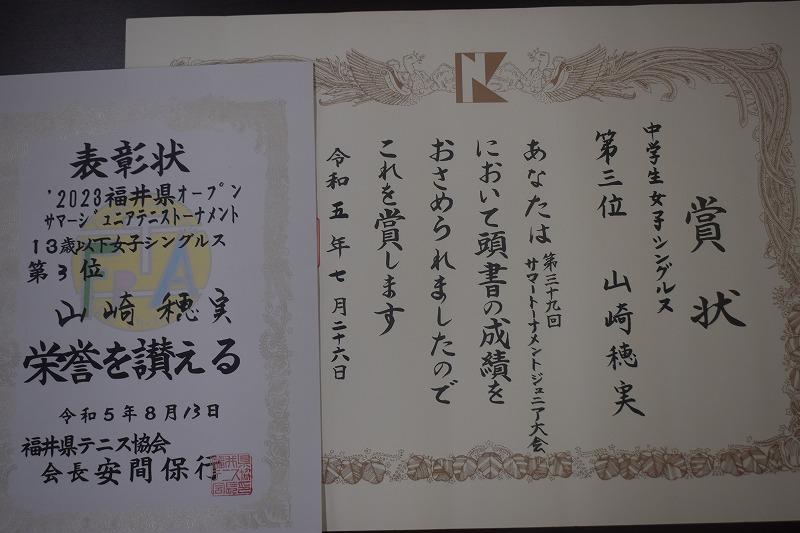 表彰状
'2023福井県オープン
サマージュニアテニストーナメント
13歳以下女子シングルス
第3位
山崎穂実
栄誉を讃える
令和5年8月13日
福井県テニス協会
会長 安間保行
賞状
中学生女子シングルス
第三位 山崎穂実
あなたは第三十九回サマートーナメントジュニア大会
において頭書の成績を
おさめられましたので
これを賞します
令和五年七月二十六日